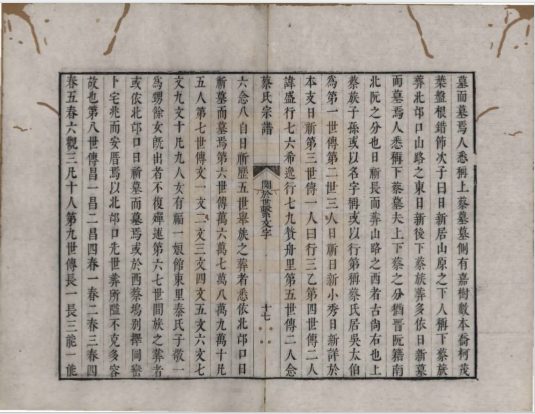 墓而墓焉人悉稱上蔡墓墓側有嘉樹數本喬柯茂
葉盤根錯節次子曰日新居山原之下人稱下蔡族
葬北邙口山路之東日新後下蔡族葬多依日新墓
而墓焉人悉稱下蔡墓夫上下蔡之分猶晉阮籍南
北阮之分也日新長而葬山路之西者古尚右也上
蔡族子孫或以名字稱或以行第稱蔡氏居吳太伯
為第一世傳第二世三人日新日新小秀日新詳於
本支日新第三世傳一人曰行三乙第四世傳二人
諱盛行七六希逵行七九贅舟里第五世傳二人念
蔡氏宗譜
閣於世繫文字
十七
六念八自日新歷五世舉族之葬者悉依北邙口日
新墓而墓焉第六世傳萬六萬七萬八萬九萬十凡
五人第七世傳文一文二文三文四文五文六文七
文九文十凡九人女有福一娘飾東里秦氏子徵一
為甥餘女旣出者不復殫述第六七世間族之葬者
或依北邙口日新墓而墓焉或於西蔡塢別擇同巒
卜宅兆而安厝焉以北邙口先世葬所隘不克多容
故也第八世傳昌一昌二昌四春一春二春三春四
春五春六觀三凡十人第九世傳長一長三能一能